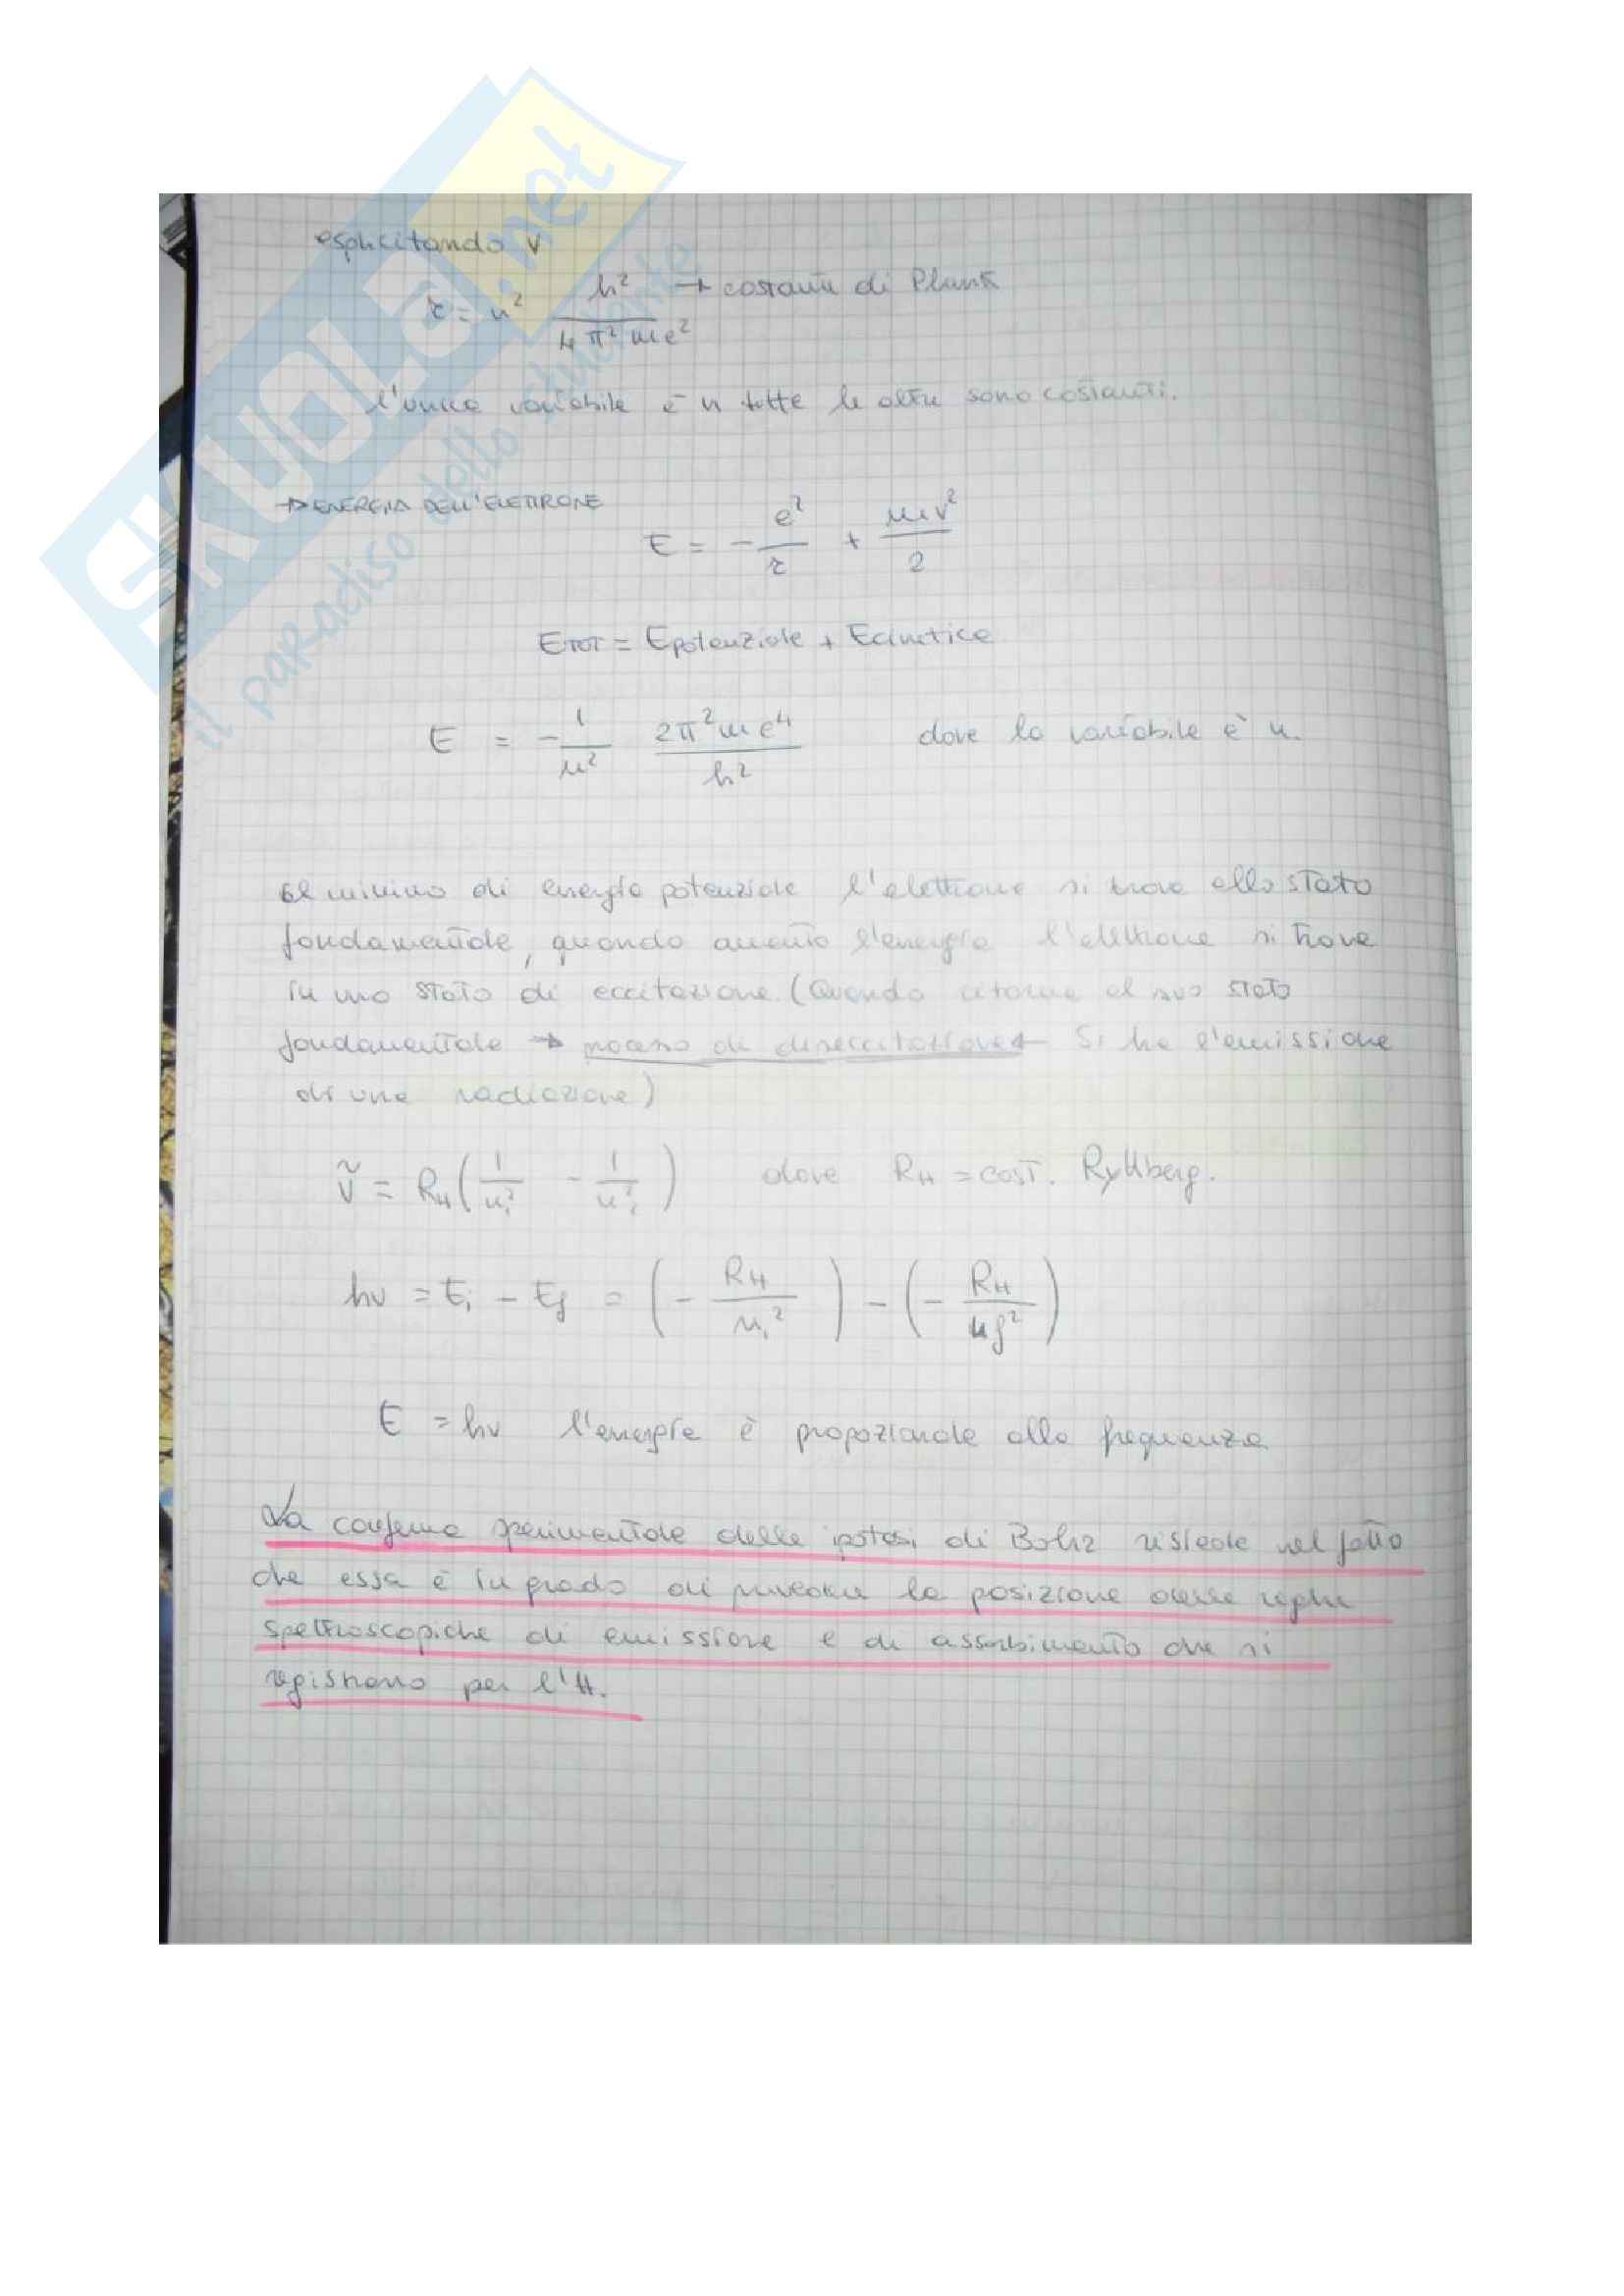 esplicitando v
r = n² h² / 4π²me² → costante di Plank
l'unica variabile è n tutte le altre sono costanti.
→ ENERGIA DELL'ELETTRONE
E = - e²/r + mv²/2
ETOT = Epotenziale + Ecinetica
E = - 1/n² 2π²me⁴/h² dove la variabile è n.
al minimo di energia potenziale l'elettrone si trova allo stato
fondamentale, quando aumento l'energia l'elettrone si trova
in uno stato di eccitazione. (Quando ritorna al suo stato
fondamentale → processo di diseccitazione ← Si ha l'emissione
di una radiazione)
ṽ = RH (1/n² - 1/n²) dove RH = cost. Rydberg.
hν = Ei - Ef = (- RH/ni²) - (- RH/nf²)
E = hν l'energia è proporzionale alla frequenza
La conferma sperimentale delle ipotesi di Bohr risiede nel fatto
che essa è in grado di prevedere la posizione delle righe
spettroscopiche di emissione e di assorbimento che si
registrano per l'H.
SKUOLA.net
il paradiso dello studente